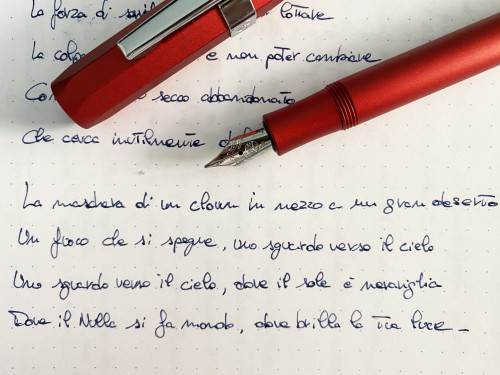 La forza di lottare
La colpa e non poter cambiare
Co secco abbandonato
Che cerca inutilmente
La maschera di un clown in mezzo a un gran deserto
Un fuoco che si spegne, uno sguardo verso il cielo
Uno sguardo verso il cielo, dove il sole è meraviglia
Dove il Nulla si fa mondo, dove brilla la tua luce_